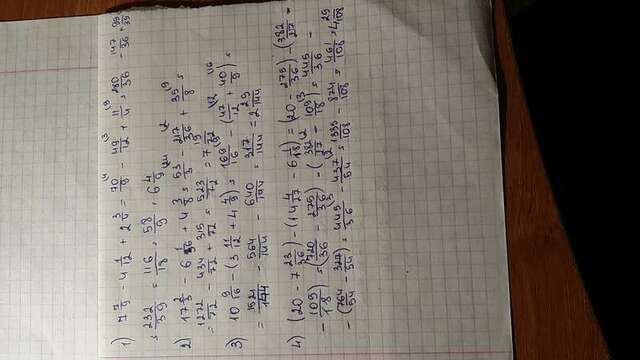 1) 7 7/9 - 4 1/12 + 2 3/4 = 70/9 - 49/12 + 11/4 = 280/36 - 147/36 + 99/36
= 232/39 = 116/18 = 58/9 = 6 4/9
2) 17 2/3 - 6 1/36 + 4 3/8 = 53/3 - 217/36 + 35/8 =
= 1272/72 - 434/72 + 315/72 = 523/72 = 7 19/72
3) 10 9/16 - (3 11/12 + 4 4/9) = 169/16 - (47/12 + 40/9) =
= 1521/144 - 564/144 - 640/144 = 317/144 = 2 29/144
4) (20 - 7 23/36) - (14 4/27 - 6 1/18) = (20 - 275/36) - (382/27 -
- 109/18) = (720/36 - 275/36) - (382/27 - 109/18) = 445/36 -
- (764/54 - 327/54) = 445/36 - 437/54 = 1335/108 - 874/108 = 461/108 = 4 29/108